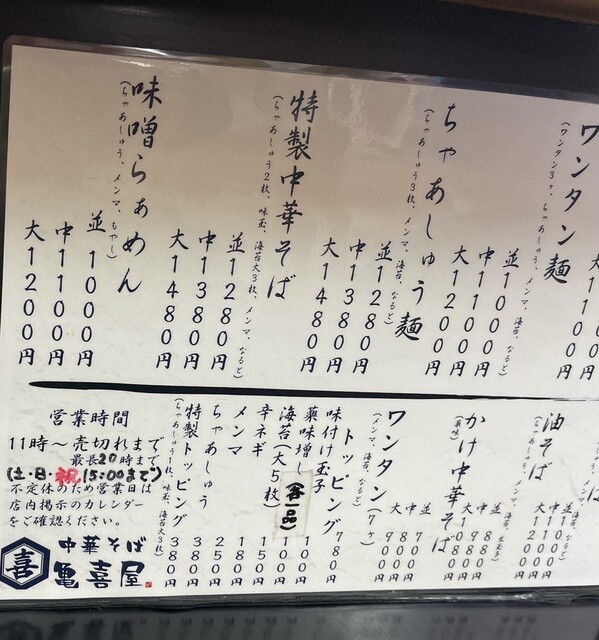 ワンタン麺
(ワンタン3ケ、ちゃあしゅう、メンマ、海苔、なると)
並1000円
中1100円
大1200円
ちゃあしゅう麺
(ちゃあしゅう3枚、メンマ、海苔、なると)
並1280円
中1380円
大1480円
特製中華そば
(ちゃあしゅう2枚、味玉、海苔大3枚、メンマ、なると)
並1280円
中1380円
大1480円
味噌らぁめん
(ちゃあしゅう、メンマ、もやし)
並1000円
中1100円
大1200円
油そば
中1100円
大1200円
かけ中華そば
(薬味)
並880円
中980円
大1080円
ワンタン(7ケ)
(メンマ、海苔、なると)
並700円
中800円
大900円
ワンタン
トッピング
味付け玉子 100円
薬味増し 100円
海苔(大5枚) 150円
辛ネギ
メンマ 180円
ちゃあしゅう
特製トッピング 380円
(ちゃあしゅう1枚、味玉、海苔大3枚)
営業時間
11時〜売切れまで
最長20時まで
(土・日・祝15:00まで)
不定休のため営業日は
店内掲示のカレンダー
をご確認ください。
喜
中華そば
亀喜屋